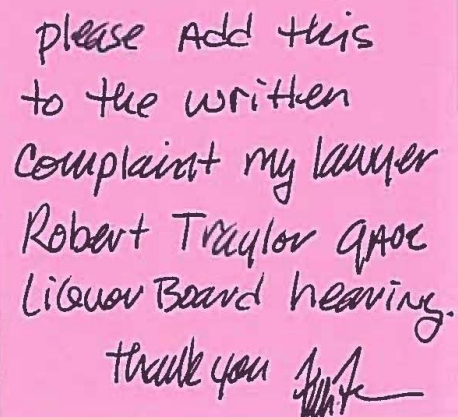 please Add this
to the written
complaint my lawyer
Robert Traylor gAve
Liquor Board hearing.
thank you